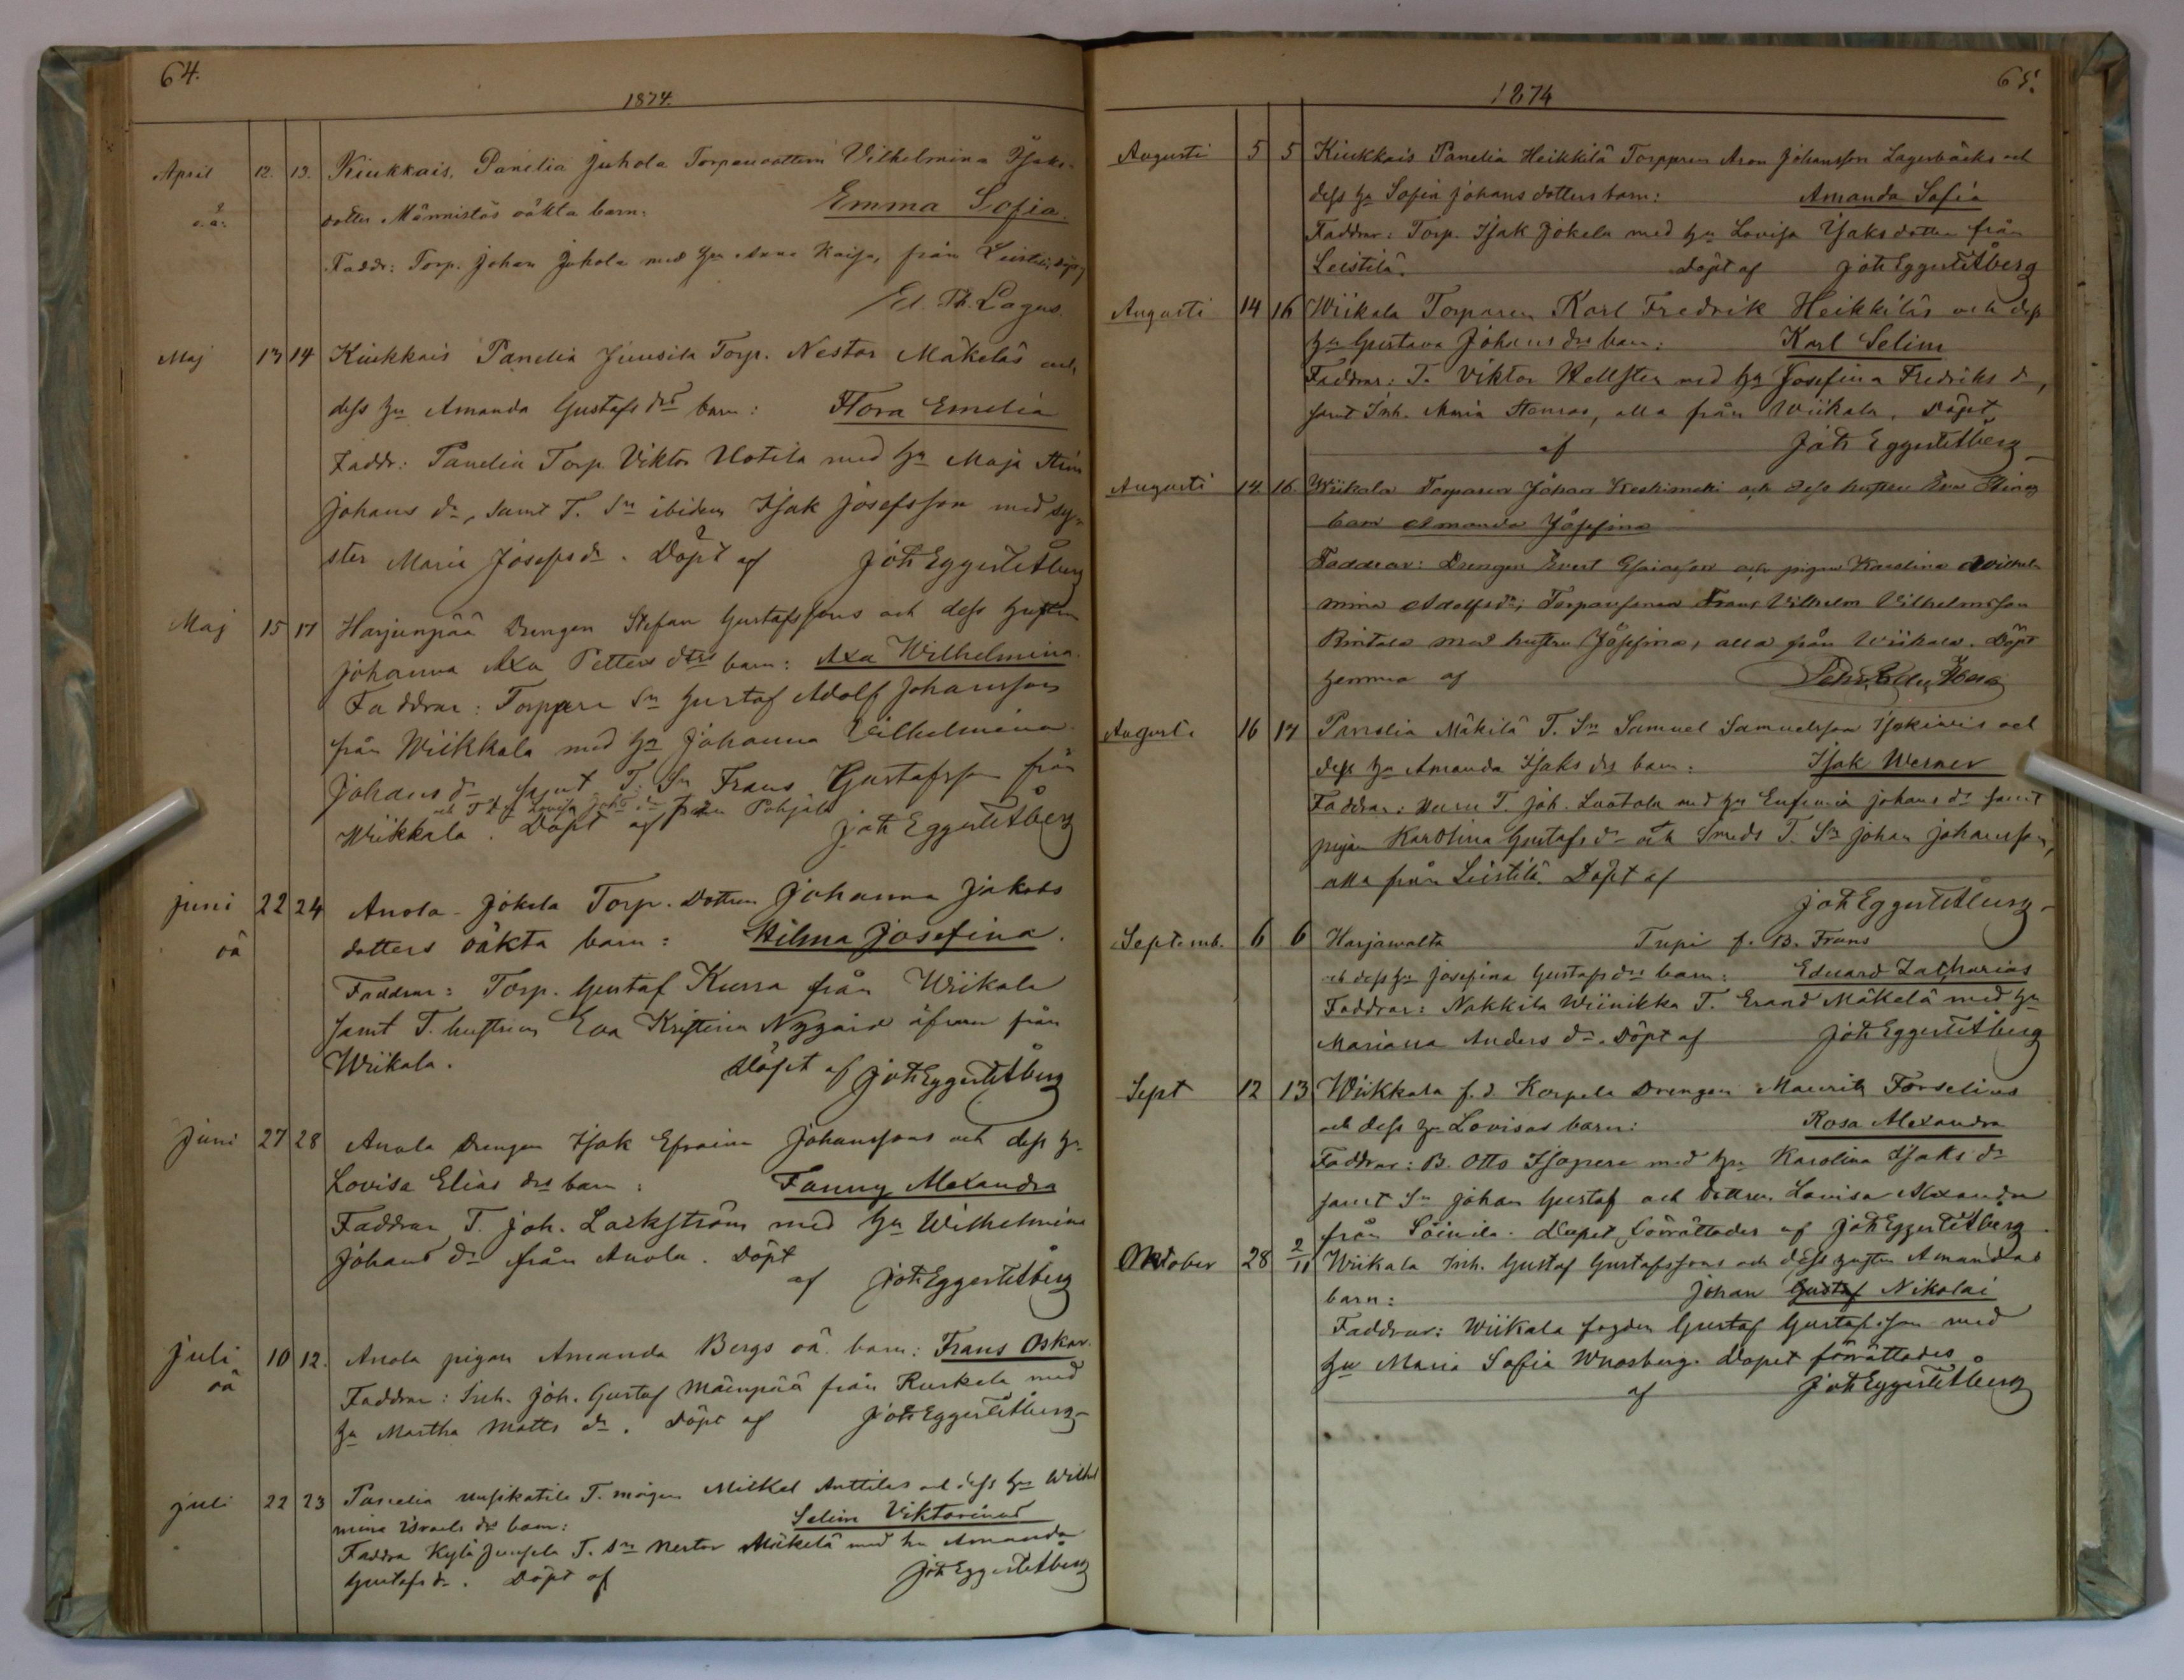 64.
1874.
April 12. 13. Kiukkais, Panelia Juhola Torparedottern Vilhelmina Isaks-
o.ä. dotter Männistös oäkta barn: Emma Sofia.
Faddr: Torp. Johan Juhola med hu Anna Kaisa, från Leistilä, döpt
Ed. Th. Lagus.
Maj 13 14 Kiukkais Panelia Juusila Torp. Nestor Mäkeläs och
dess hu Amanda Gustafs drs barn: Flora Emelia
Faddr: Panelia Torp. Viktor Uotila med hu Maja Stina
Johans dr, samt T. Sn ibidem Isak Josefsson med sy-
ster Maria Josefs dr. Döpt af Joh Eggert Åberg
Maj 15 17 Harjunpää Drengen Stefan Gustafssons och dess hustru
Johanna Axa Petters dtrs barn: Axa Wilhelmina.
Faddrar: Torppare Sn Gustaf Adolf Johansson
från Wiikkala med hu Johanna Vilhelmina
Johans dr samt T. Sn Frans Gustafsson från
och T dr Lovisa Johs dr från Pohjala
Wiikkala. Döpt af Joh Eggert Åberg
Juni 22 24 Anola-Jokela Torp. Dottren Johanna Jakobs
oä dotters oäkta barn: Hilma Josefina.
Faddrar: Torp. Gustaf Kurra från Wiikala
samt T. hustrun Eva Kristina Nygård äfven från
Wiikala. Döpt af Joh Eggert Åberg
Juni 27 28 Anola Drengen Isak Efraim Johanssons och dess hu
Lovisa Elias drs barn: Fanny Alexandra
Faddrar T. Joh. Lackström med hu Wilhelmina
Johans dr från Anola. Döpt
af Joh Eggert Åberg
Juli 10 12. Anola pigan Amanda Bergs oä. barn: Frans Oskar.
oä Faddrar: Inh. Joh. Gustaf Mäenpää från Ruskela med
hu Martha Matts dr. Döpt af Joh Eggert Åberg
Juli 22 23 Panelia T. mågen Mikkel Anttilas och dess hu Wilhel
mina Israels drs barn: Selim Viktorinus
Faddra Kylä Juusela T. Sn Nestor Mäkelä med hu Amanda
Gustafs dr. Döpt af Joh Eggert Åberg
65.
1874
Augusti 5 5 Kiukkais Panelia Heikkilä Torpparen Aron Johansson Lagerbäcks och
dess hu Sofia Johans dotters barn: Amanda Sofia
Faddrar: Torp. Isak Jokela med hu Lovisa Isaksdotter från
Leistilä. Döpt af Joh Eggert Åberg
Augusti 14 16 Wiikala Torparen Karl Fredrik Heikkiläs och dess
hu Gustava Johans drs barn: Karl Selim
Faddrar: T. Viktor Hellsten med hu Josefina Fredriks dr,
samt Inh. Maria Stenros, alla från Wiikala. Döpt
af Joh Eggert Åberg
Augusti 14. 16. Wiikala Torparen Johan Keskimäki och dess hustru Eva Stinas
barn Amanda Josefina
Faddrar: Drengen Evert Esaiasson och pigan Karolina Wilhel
mina Adolfsdr; Torparesonen Frans Vilhelm Vilhelmsson
Rintala med hustru Josefina, alla från Wiikala. Döpt
hemma af
Augusti 16 17 Panelia Mäkilä T. Sn Samuel Samuelsson och
dess hu Amanda Isaks drs barn: Isak Werner
Faddrar: T. Joh. Luotola med hu Eufemia Johans dr samt
pigan Karolina Gustafs dr och Smeds T. Sn Johan Johansson,
alla från Leistilä. Döpt af
Joh Eggert Åberg
Septemb. 6 6 Harjawalta Tupi f. B. Frans
och dess hu Josefina Gustafs drs barn: Eduard Zacharias
Faddrar: Nakkila Wiinikka T. Erland Mäkelä med hu
Mariana Anders dr. Döpt af Joh Eggert Åberg
Sept 12 13 Wiikkala f.d. Korpela Drengen Maurits Forselius
och dess hu Lovisas barn: Rosa Alexandra
Faddrar: B. Otto Isopere med hu Karolina Isaks dr
samt Sn Johan Gustaf och Dottren Lovisa Alexandra
från Soinila. Dopet förrättades af Joh Eggert Åberg
Oktober 28 2/11 Wiikala Inh. Gustaf Gustafssons och dess hustru Amandas
barn: Johan Gustaf Nikolai
Faddrar: Wiikala fogden Gustaf Gustafsson med
hu Maria Sofia Wuosberg. Dopet förrättades
af Joh Eggert Åberg